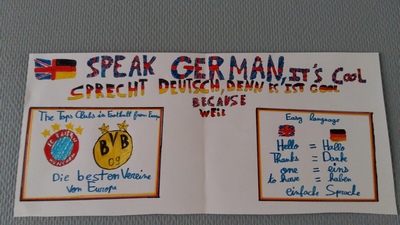 SPEAK GERMAN, IT'S COOL
SPRECHT DEUTSCH, DENN ES IST COOL
BECAUSE
WEIL
The Tops Clubs in Football from Europe
FC BAYERN
MÜNCHEN
BVB
09
Die besten Vereine
von Europa
Easy language
Hello = Hallo
Thanks = Danke
one = eins
to have = haben
einfache Sprache